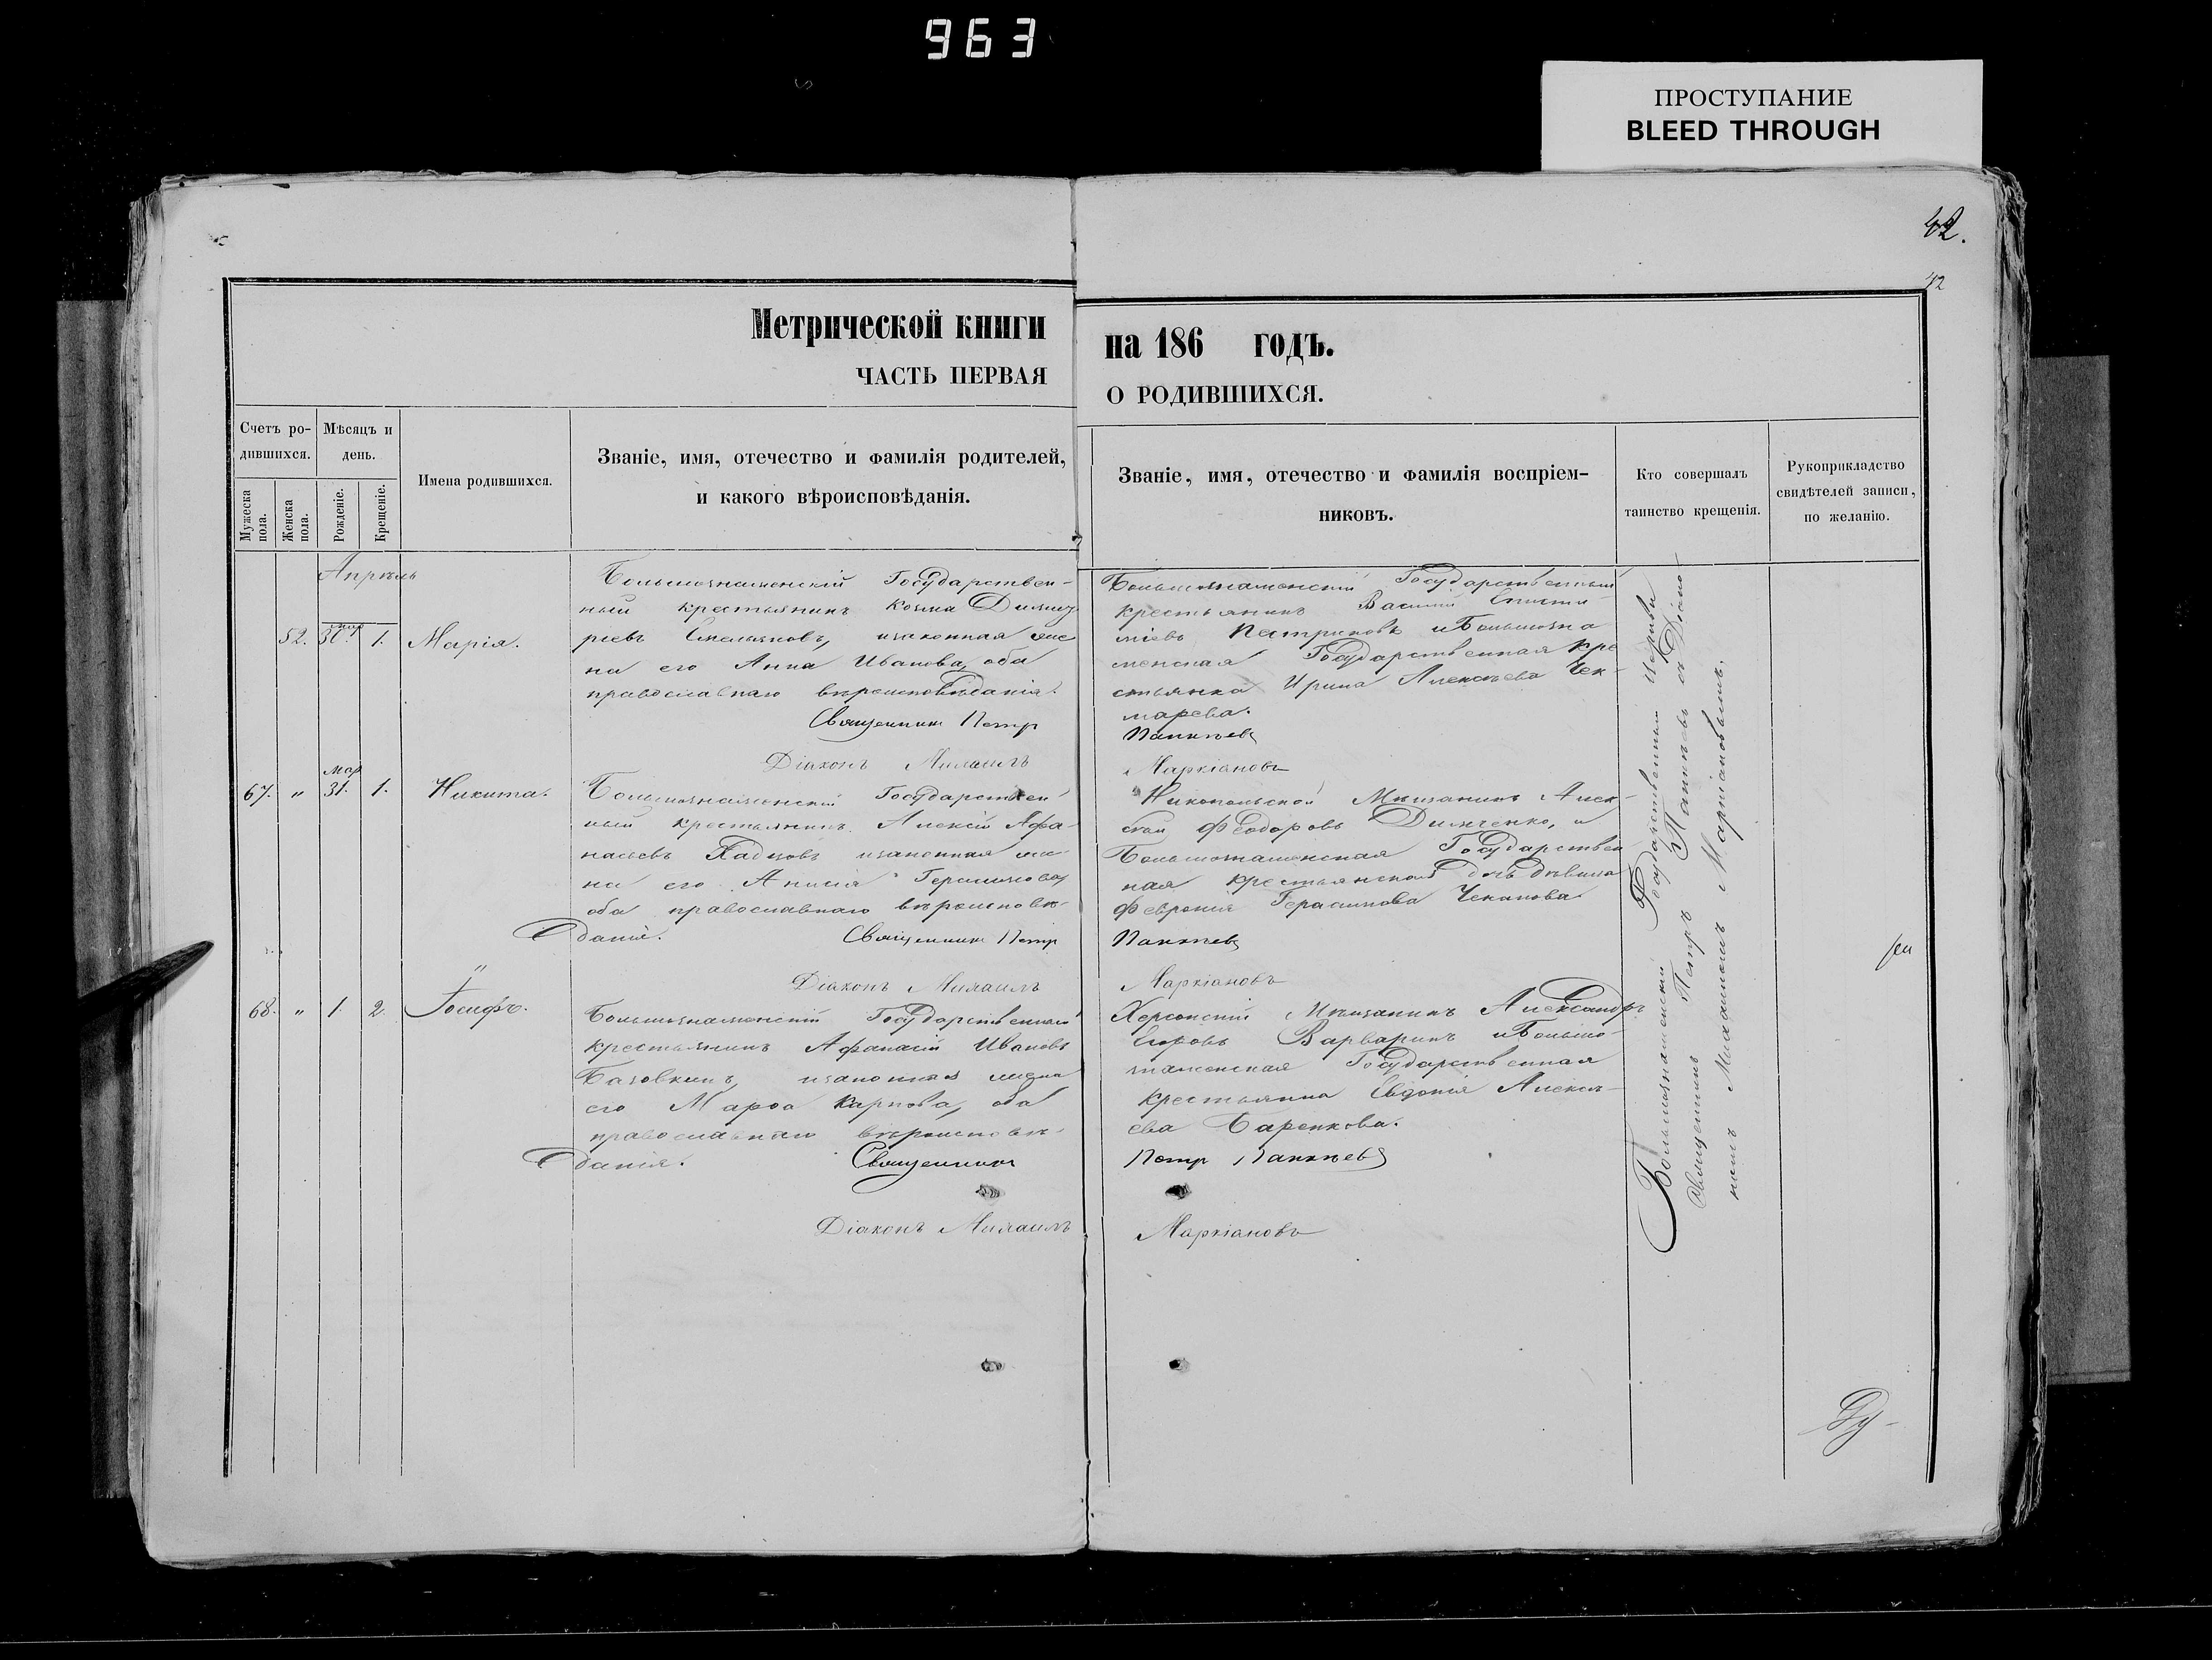 963
ПРОСТУПАНИЕ
BLEED THROUGH
42.
42
Метрической книги
на 186 годъ.
ЧАСТЬ ПЕРВАЯ
О РОДИВШИХСЯ.
Счетъ ро-
дившихся.
Мѣсяцъ и
день.
Мужеска
пола.
Женска
пола.
Рожденіе.
Крещеніе.
Имена родившихся.
Званіе, имя, отечество и фамилія родителей,
и какого вѣроисповѣданія.
Званіе, имя, отечество и фамилія воспріем-
никовъ.
Кто совершалъ
таинство крещенія.
Рукоприкладство
свидѣтелей записи,
по желанію.
Апрѣль
52. Мар 30. 1. Марія.
Большознаменскій Государствен-
ный крестьянинъ Козма Димит
ріевъ Емельяновъ, изаконная же
на его Анна Иванова, оба
православнаго вѣроисповѣданія.
Священникъ Петр
Діаконъ Михаилъ
Большознаменскій Государственный
крестьянинъ Василій
Петриковъ иБольшозна
менская Государственная кре
стьянка Ирина Алексѣева Чек-
марева.
Панкѣев
Маркіановъ
67. " Мар 31. 1. Никита.
Большознаменскій Государствен
ный крестьянинъ Алексій Афа-
насьевъ изаконная же
на его Анисія Герасимова,
оба православнаго вѣроисповѣ-
данія. Священникъ Петр
Діаконъ Михаилъ
Никопольской Мѣщанинъ Алек-
сѣй Феодоровъ Димченко, и
Большознаменская Государствен
ная крестьянская дочь дѣвица
Февронія Герасимова Чеканова.
Панкѣев
Маркіановъ
68. " 1. 2. Іосифъ.
Большознаменскій Государственный
крестьянинъ Афанасій Ивановъ
Базовкинъ, изаконная жена
его Марѳа Карпова, оба
православнаго вѣроисповѣ-
данія. Священникъ
Діаконъ Михаилъ
Херсонскій Мѣщанинъ Александръ
Егоровъ Варваринъ иБольшо-
знаменская Государственная
крестьянка Евдокія Алексѣ-
ева Баренкова.
Петр Панкѣев
Маркіановъ
Большознаменскій Государственный
Священникъ Петръ Панкѣевъ съ Діако-
номъ Михаиломъ Маркіановымъ.